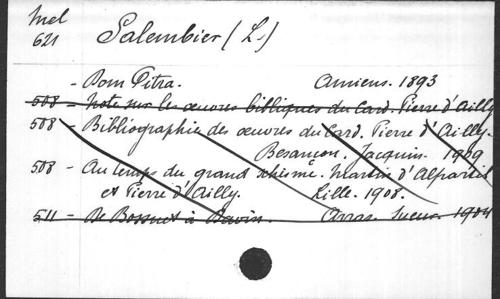 Mel
621
Salembier (L.)
- Dom Pitra. Amiens. 1893
508 - Note sur les œuvres bibliques du Card. Pierre d'Ailly
508 - Bibliographie des œuvres du Card. Pierre d'Ailly.
Besançon. Jacquin. 1909
508 - Au temps du grand schisme. Martin d'Alparteil
et Pierre d'Ailly. Lille. 1908.
511 - De Bossuet à Darwin. Arras. Sueur. 1904